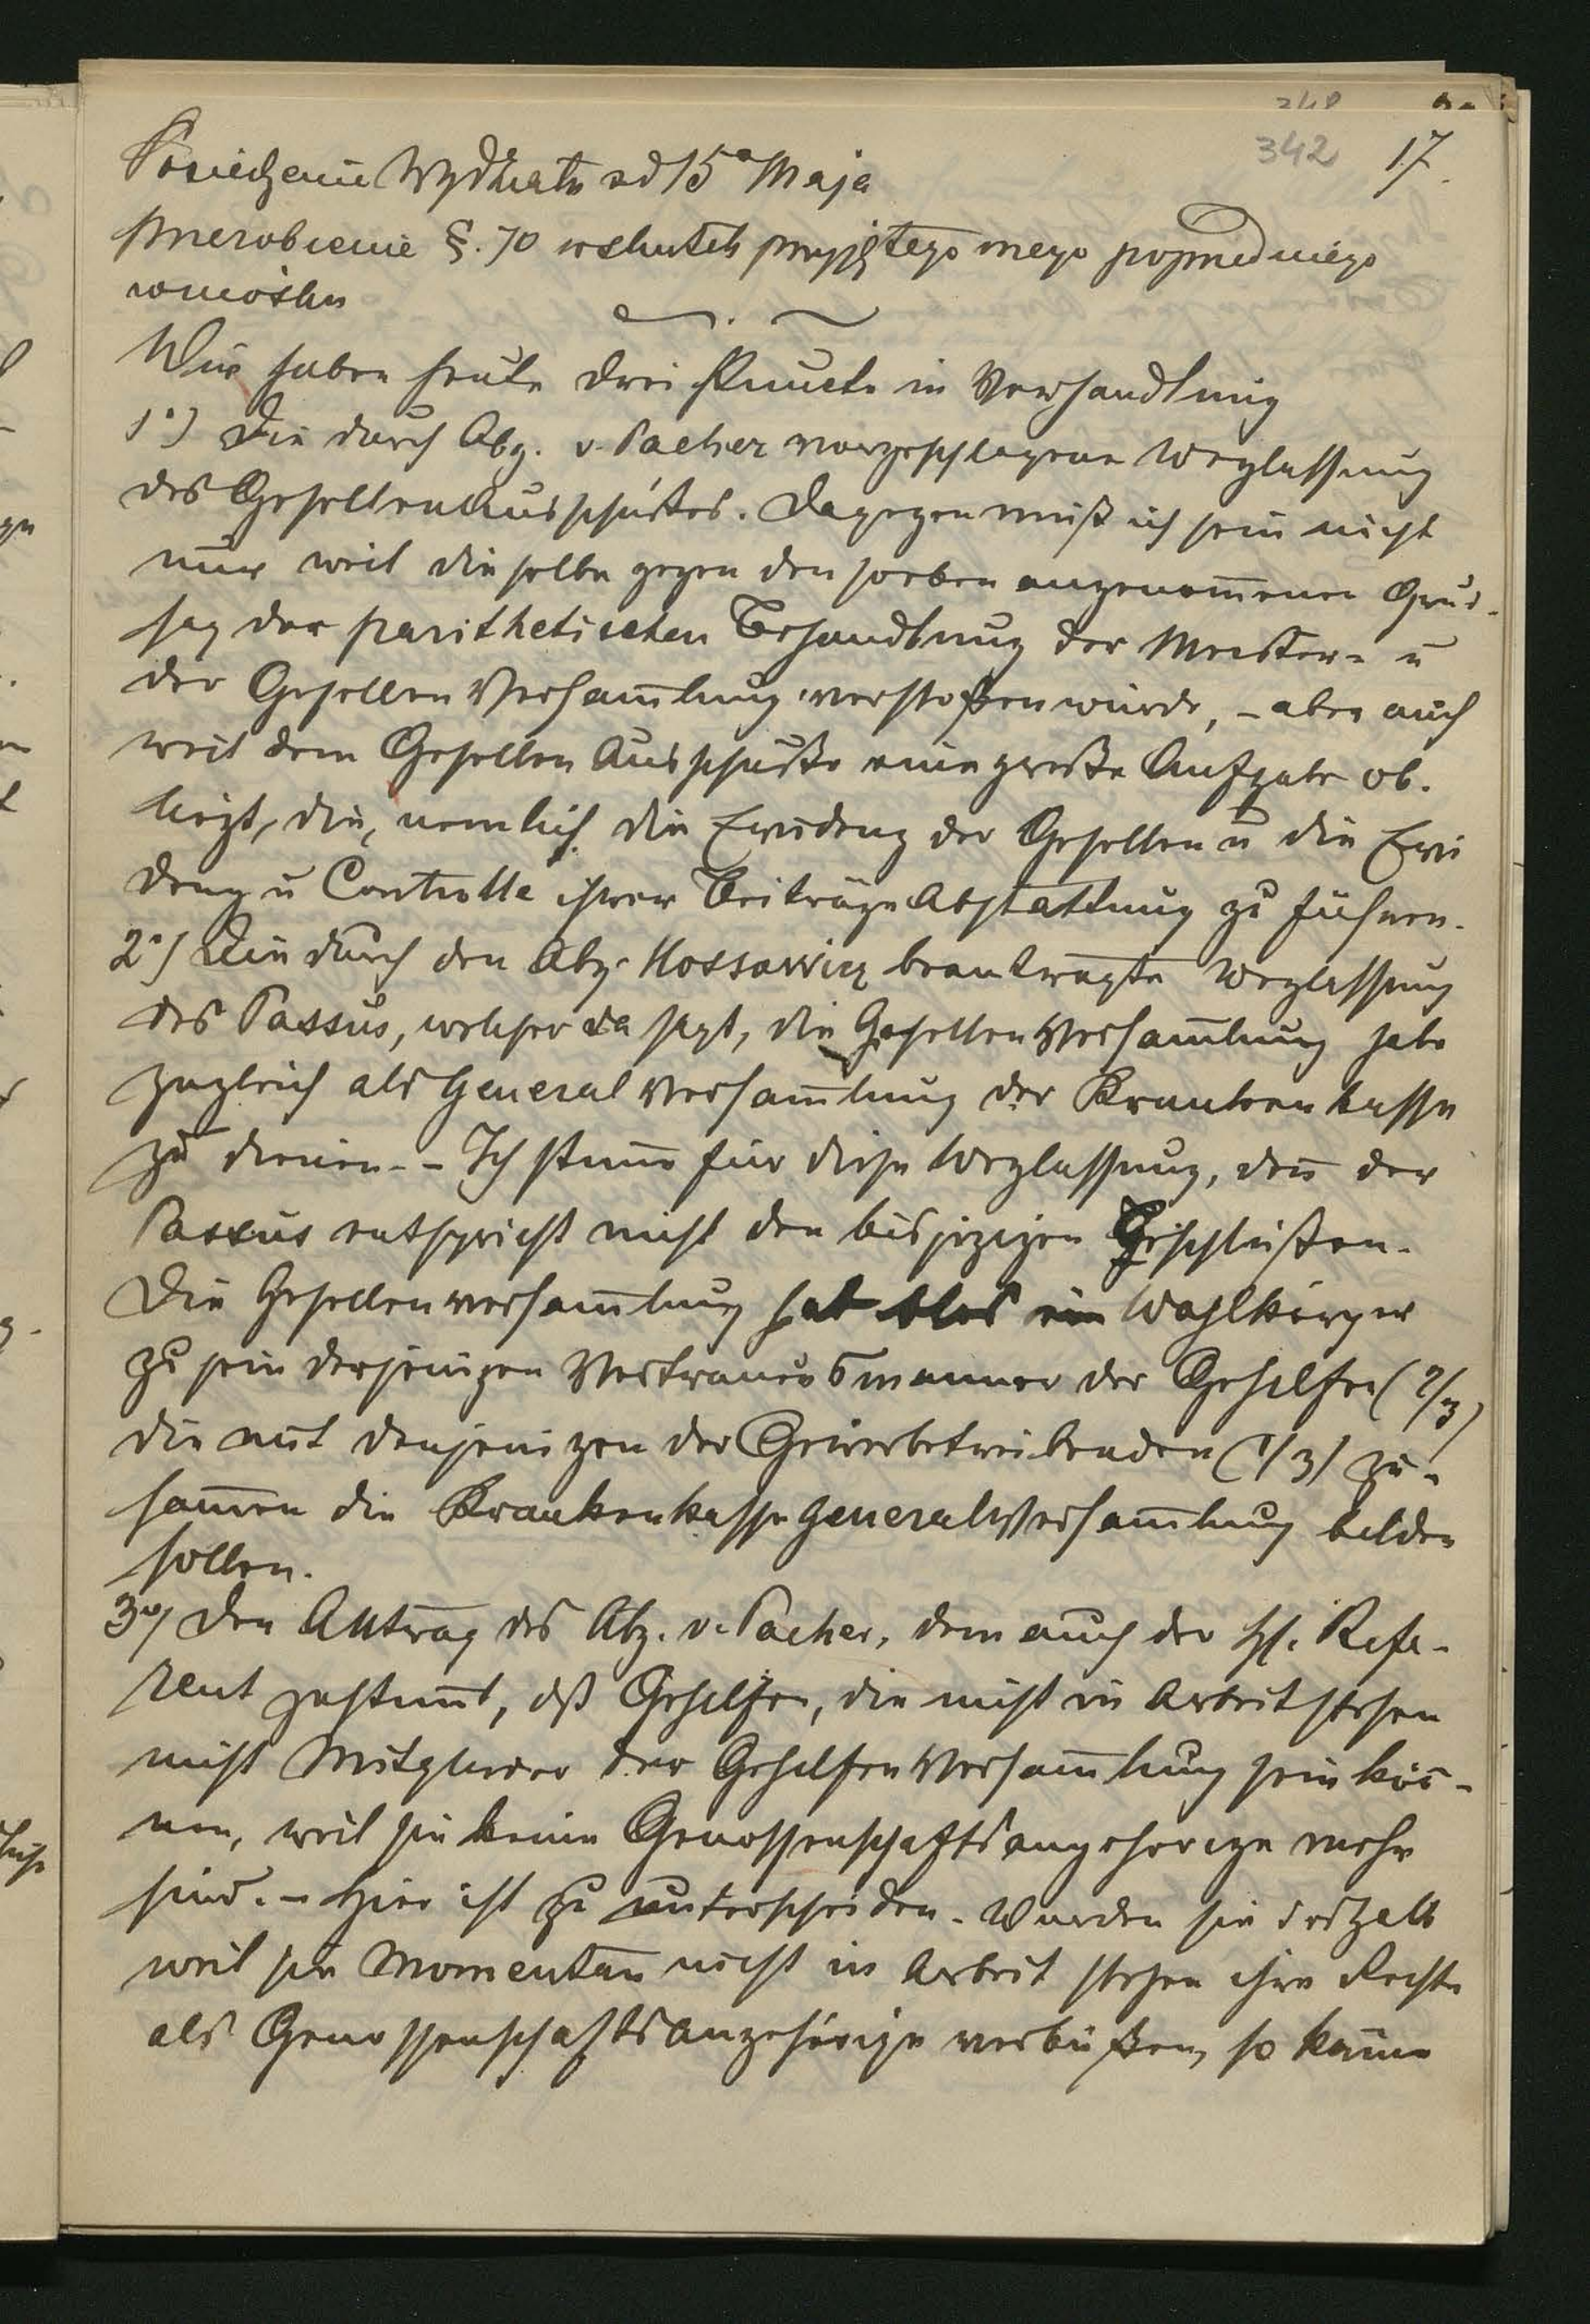 342 17.
Posiedzenie Wydziału ad 15º Maja
przerobienie §. 70 wskutek przyjętego mego poprzedniego
wniosku
Wir haben heute drei Puncte in Verhandlung
1º) Die durch Abg. v. Pacher vorgeschlagene Weglassung
des Gesellenausschußes. Dagegen muß ich sein nicht
nur weil dieselbe gegen den soeben angenom̄enen Grund-
saz der parithetischen Behandlung der Meister- u
der Gesellen Versam̄lung verstoßen würde, – aber auch
weil dem Gesellen Ausschuße eine große Aufgabe ob-
liegt, die, nemlich die Evidenz der Gesellen u die Evi
denz u Controlle ihrer Beiträge Abstattung zu führen.
2º) Die durch den Abg. Kossowicz beantragte Weglassung
des Passus, welcher da sagt, die Gesellen Versam̄lung habe
zugleich als General Versam̄lung der Krankenkasse
zu dienen. – Ich stim̄e für diese Weglassung, den̄ der
Passus entspricht nicht den bisjezigen Beschlüßen.
Die Gesellenversam̄lung hat blos ein Wahlkörper
zu sein derjenigen Vertrauensmänner der Gehilfen (2/3)
die mit denjenigen der Gewerbetreibenden (1/3) zu-
sam̄en die Krankenkasse GeneralVersam̄lung bilden
sollen.
3º) Den Antrag des Abg. v. Pacher, dem auch der H. Refe-
rent zustim̄t, dß Gehilfen, die nicht in Arbeit stehen
nicht Mitglieder der Gehilfen Versam̄lung sein kön̄-
nen, weil sie keine Genossenschaftsangehörige mehr
sind. – Hier ist zu unterscheiden. Wurden sie deshalb
weil sie momentan nicht in Arbeit stehen ihre Rechte
als Genossenschaftsangehörige verbüßen, so käme